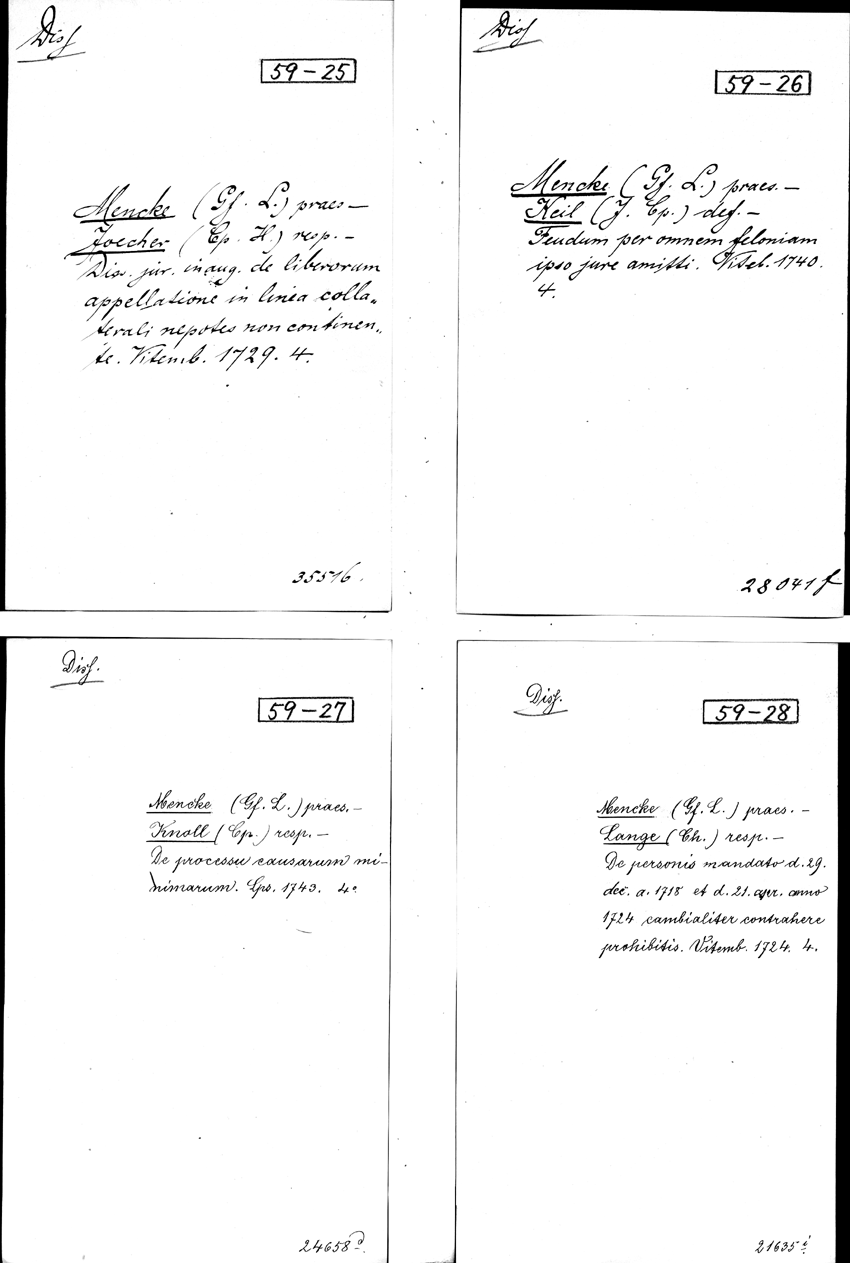 Diss
59-25
Mencke (Gf. L.) praes—
Joecher (Cp. H.) resp.—
Diss. jur. inaug. de liberorum
appellatione in linea colla„
terali nepotes non continen„
te. Vitemb. 1729. 4.
35516.
Diss
59-26
Mencke (Gf. L.) praes.—
Keil (J. Cp.) def.—
Feudum per omnem feloniam
ipso jure amitti. Viteb. 1740.
4.
28041f
Diss.
59-27
Mencke (Gf. L.) praes.—
Knoll (Cp.) resp.—
De processu causarum mi-
nimarum. Lps. 1743. 4o
24658d.
Diss.
59-28
Mencke (Gf. L.) praes.—
Lange (Ch.) resp.—
De personis mandato d. 29.
dec. a. 1718 et d. 21. apr. anno
1724 cambialiter contrahere
prohibitis. Vitemb. 1724. 4.
21635i